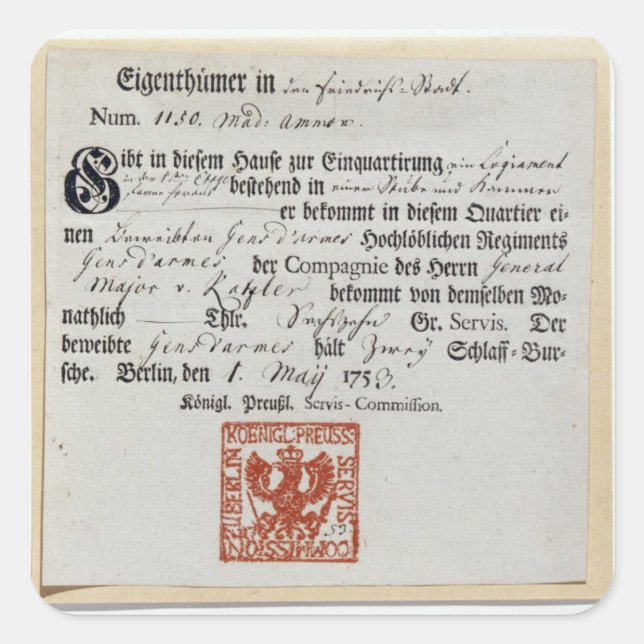 Eigenthümer in den Friedrichs-Stadt.
Num. 1150. Mad: Ammon.
Gibt in diesem Hause zur Einquartirung ein Logiament
in der Etage
bestehend in einer Stube und Kammer
er bekommt in diesem Quartier ei-
nen beweibten Gens d'armes Hochlöblichen Regiments
Gens d'armes der Compagnie des Herrn General
Major v. Katzler bekommt von demselben Mo-
nathlich — Thlr. Sechszehn Gr. Servis. Der
beweibte Gens d'armes hält Zwey Schlaff-Bur-
sche. Berlin, den 1. Maÿ 1753.
Königl. Preußl. Servis-Commission.
KOENIGL: PREUSS:
SERVIS
COMMISSION
ZU BERLIN
53